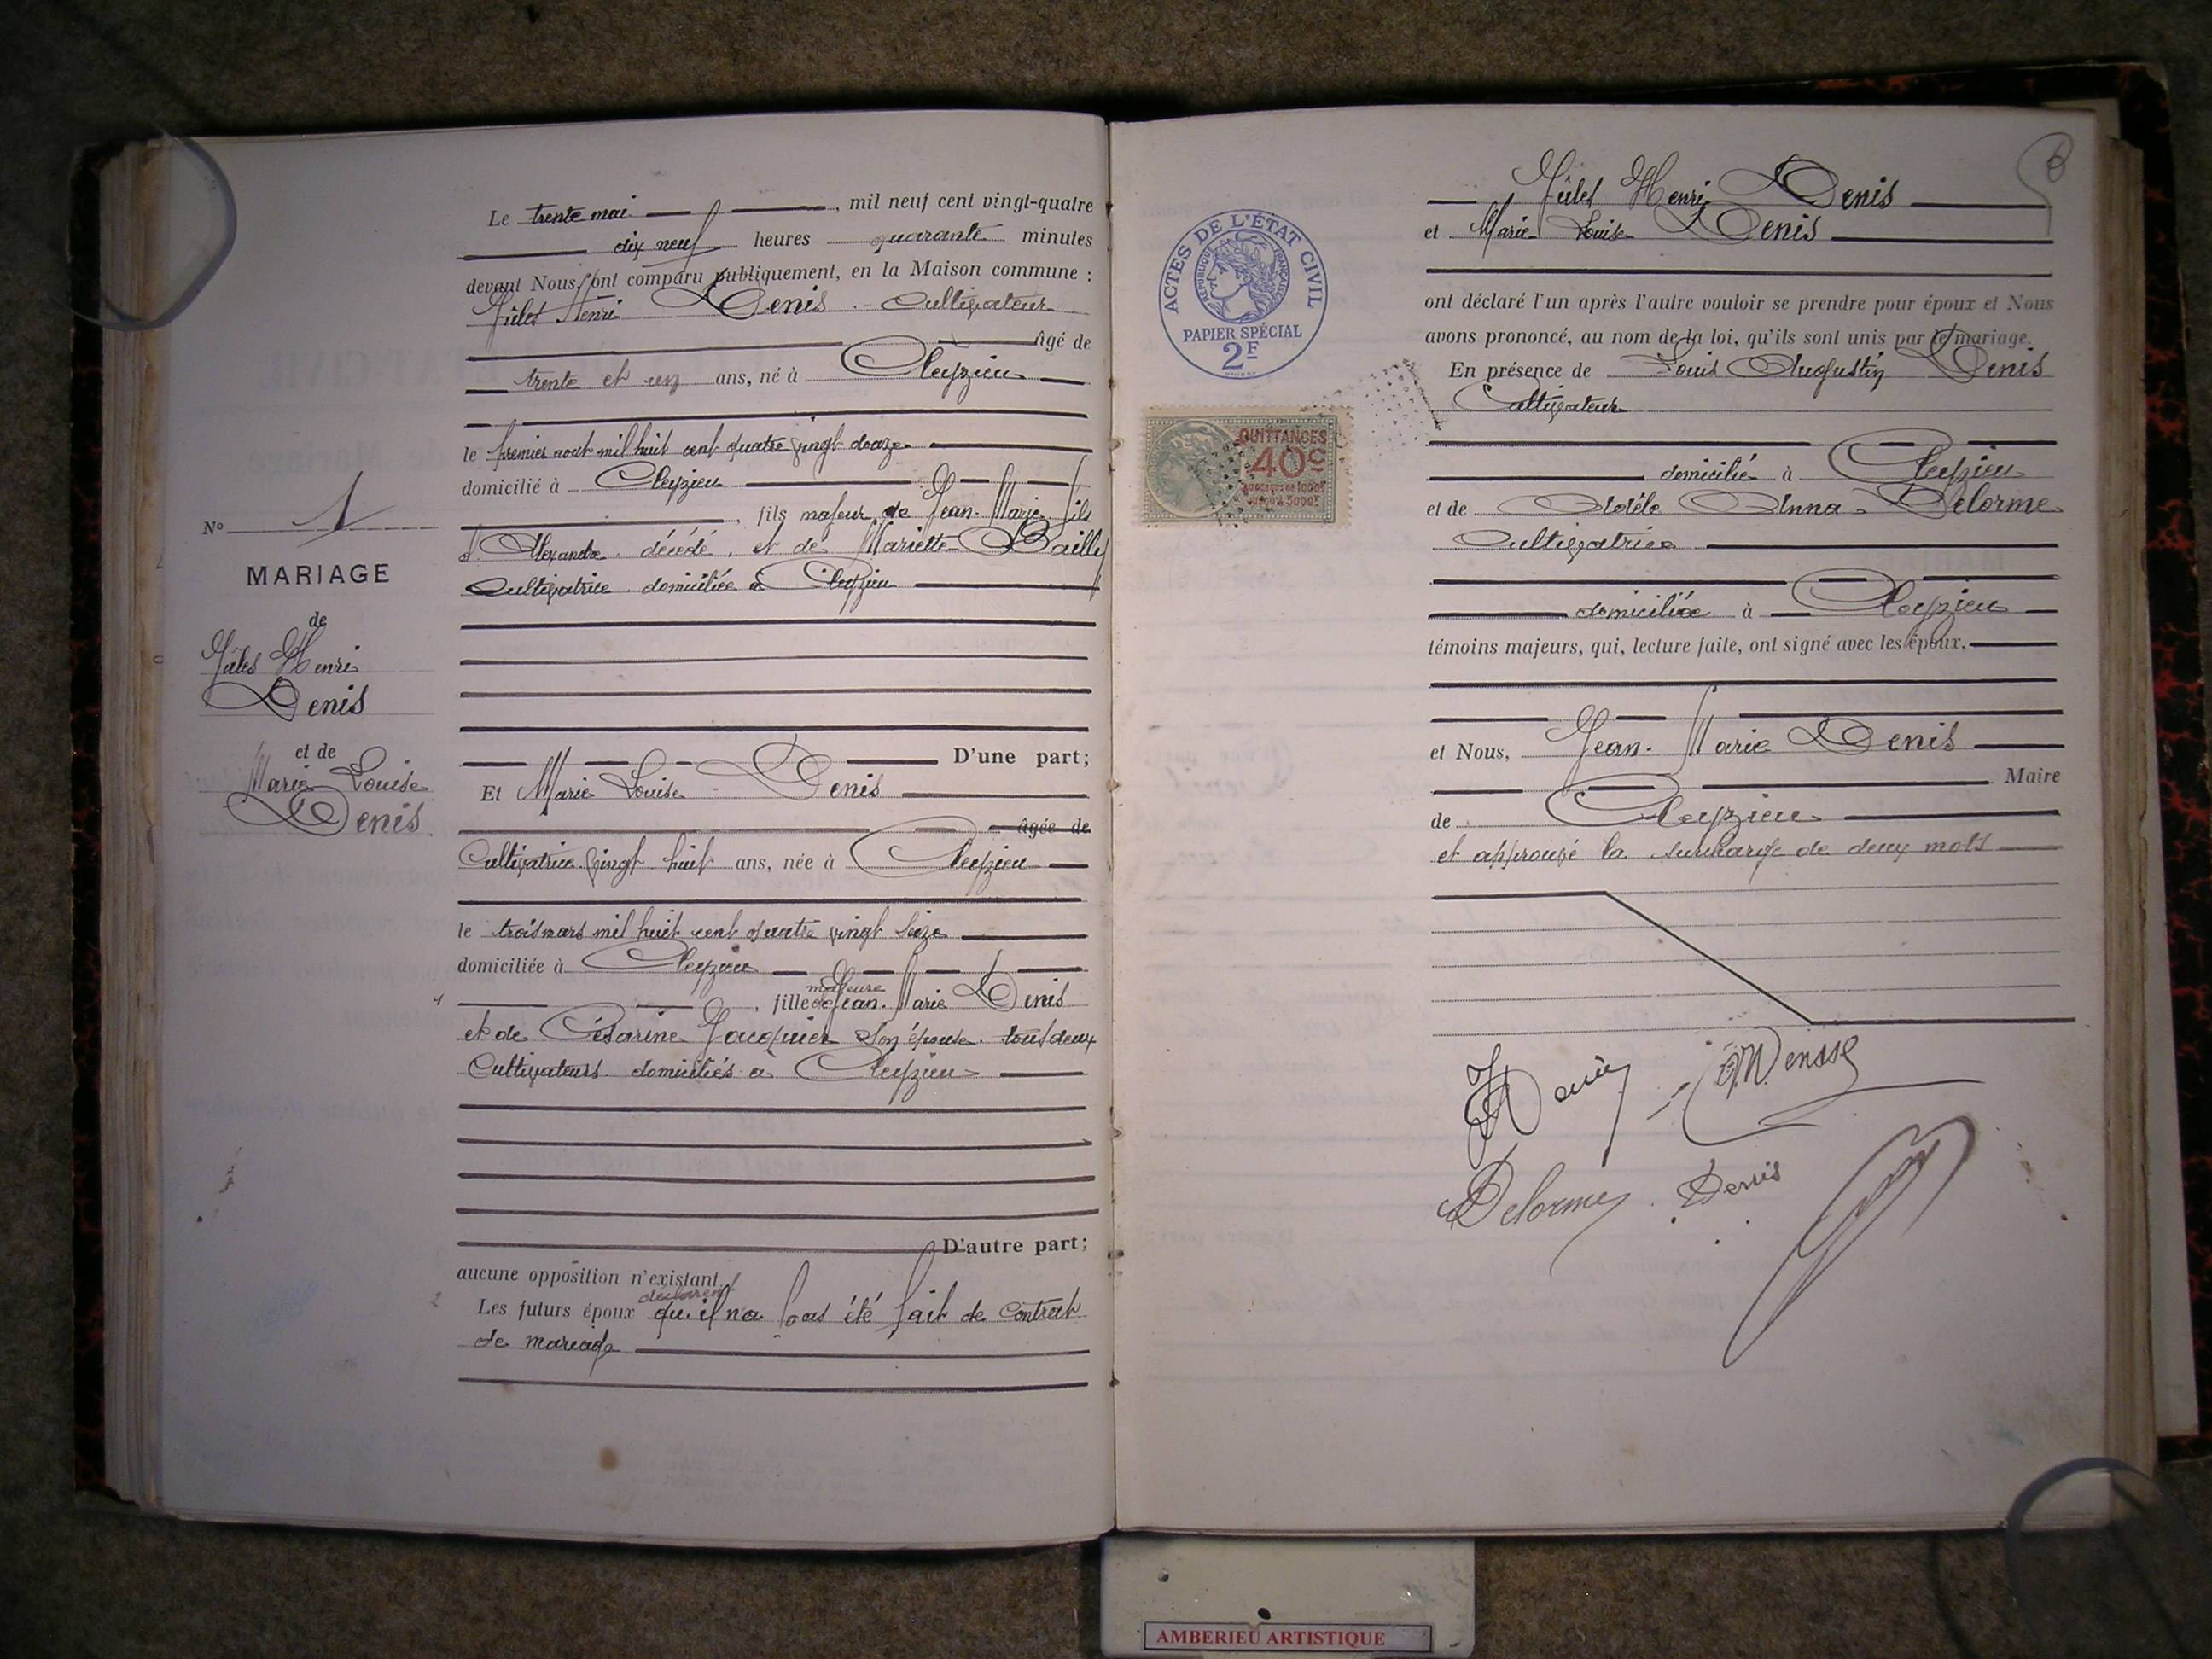 Le trente mai, mil neuf cent vingt-quatre
dix neuf heures quarante minutes
devant Nous, ont comparu publiquement, en la Maison commune :
Jules Henri Denis. Cultivateur
âgé de
trente et un ans, né à Cleyzieu
le premier aout mil huit cent quatre vingt douze
domicilié à Cleyzieu
, fils majeur de Jean-Marie fils
d'Alexandre décédé, et de Mariette Bailly
Cultivatrice domiciliée à Cleyzieu
N° 1
MARIAGE
de
Jules Henri
Denis
et de
Marie Louise
Denis
D'une part;
Et Marie Louise Denis
âgée de
Cultivatrice vingt huit ans, née à Cleyzieu
le trois mars mil huit cent quatre vingt seize
domiciliée à Cleyzieu
majeure
, fille de Jean-Marie Denis
et de Césarine Jacquier son épouse tous deux
Cultivateurs domiciliés à Cleyzieu
D'autre part;
aucune opposition n'existant.
déclarent
Les futurs époux qu'il n'a pas été fait de contrat
de mariage
ACTES DE L'ÉTAT CIVIL
RÉPUBLIQUE FRANÇAISE
PAPIER SPÉCIAL
2F
QUITTANCES
40c
Jules Henri Denis
et Marie Louise Denis
ont déclaré l'un après l'autre vouloir se prendre pour époux et Nous
avons prononcé, au nom de la loi, qu'ils sont unis par le mariage.
En présence de Louis Augustin Denis
Cultivateur
domicilié à Cleyzieu
et de Adèle Anna Delorme
Cultivatrice
domiciliée à Cleyzieu
témoins majeurs, qui, lecture faite, ont signé avec les époux.
et Nous, Jean-Marie Denis
Maire
de Cleyzieu
et approuvé la surcharge de deux mots
Delorme Denis
AMBERIEU ARTISTIQUE